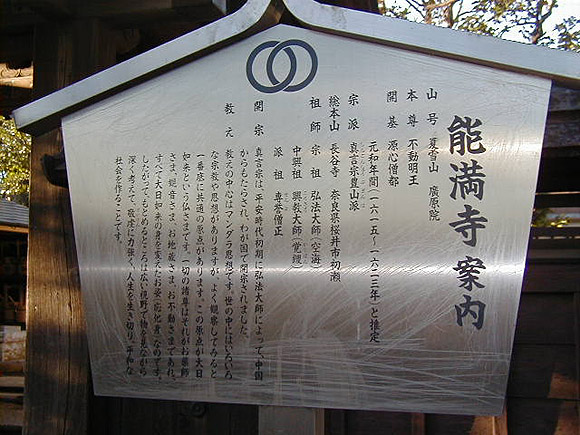 能満寺案内
山号 夏雪山 廣原院
本尊 不動明王
開基 源心僧都
元和年間(一六一五~一六二三年)と推定
宗派 真言宗豊山派
総本山 長谷寺 奈良県桜井市初瀬
祖師 宗祖 弘法大師(空海)
中興祖 興教大師(覚鑁)
派祖 専誉僧正
開宗 真言宗は、平安時代初期に弘法大師によって、中国
からもたらされ、わが国で開宗されました。
教え 教えの中心はマンダラ思想です。世の中にはいろいろ
な宗教や思想がありますが、よく観察してみると
一番底に共通の原点があります。この原点が大日
如来という仏さまです。一切の諸尊はそれがお薬師
さま、観音さま、お地蔵さま、お不動さまであれ、
すべて大日如来の身を変えたお姿(応化身)なのです。
したがって、もとめるところは広い視野で物を見ながら
深く考えて、敬虔に力強く人生を生き切り、平和な
社会を作ることです。